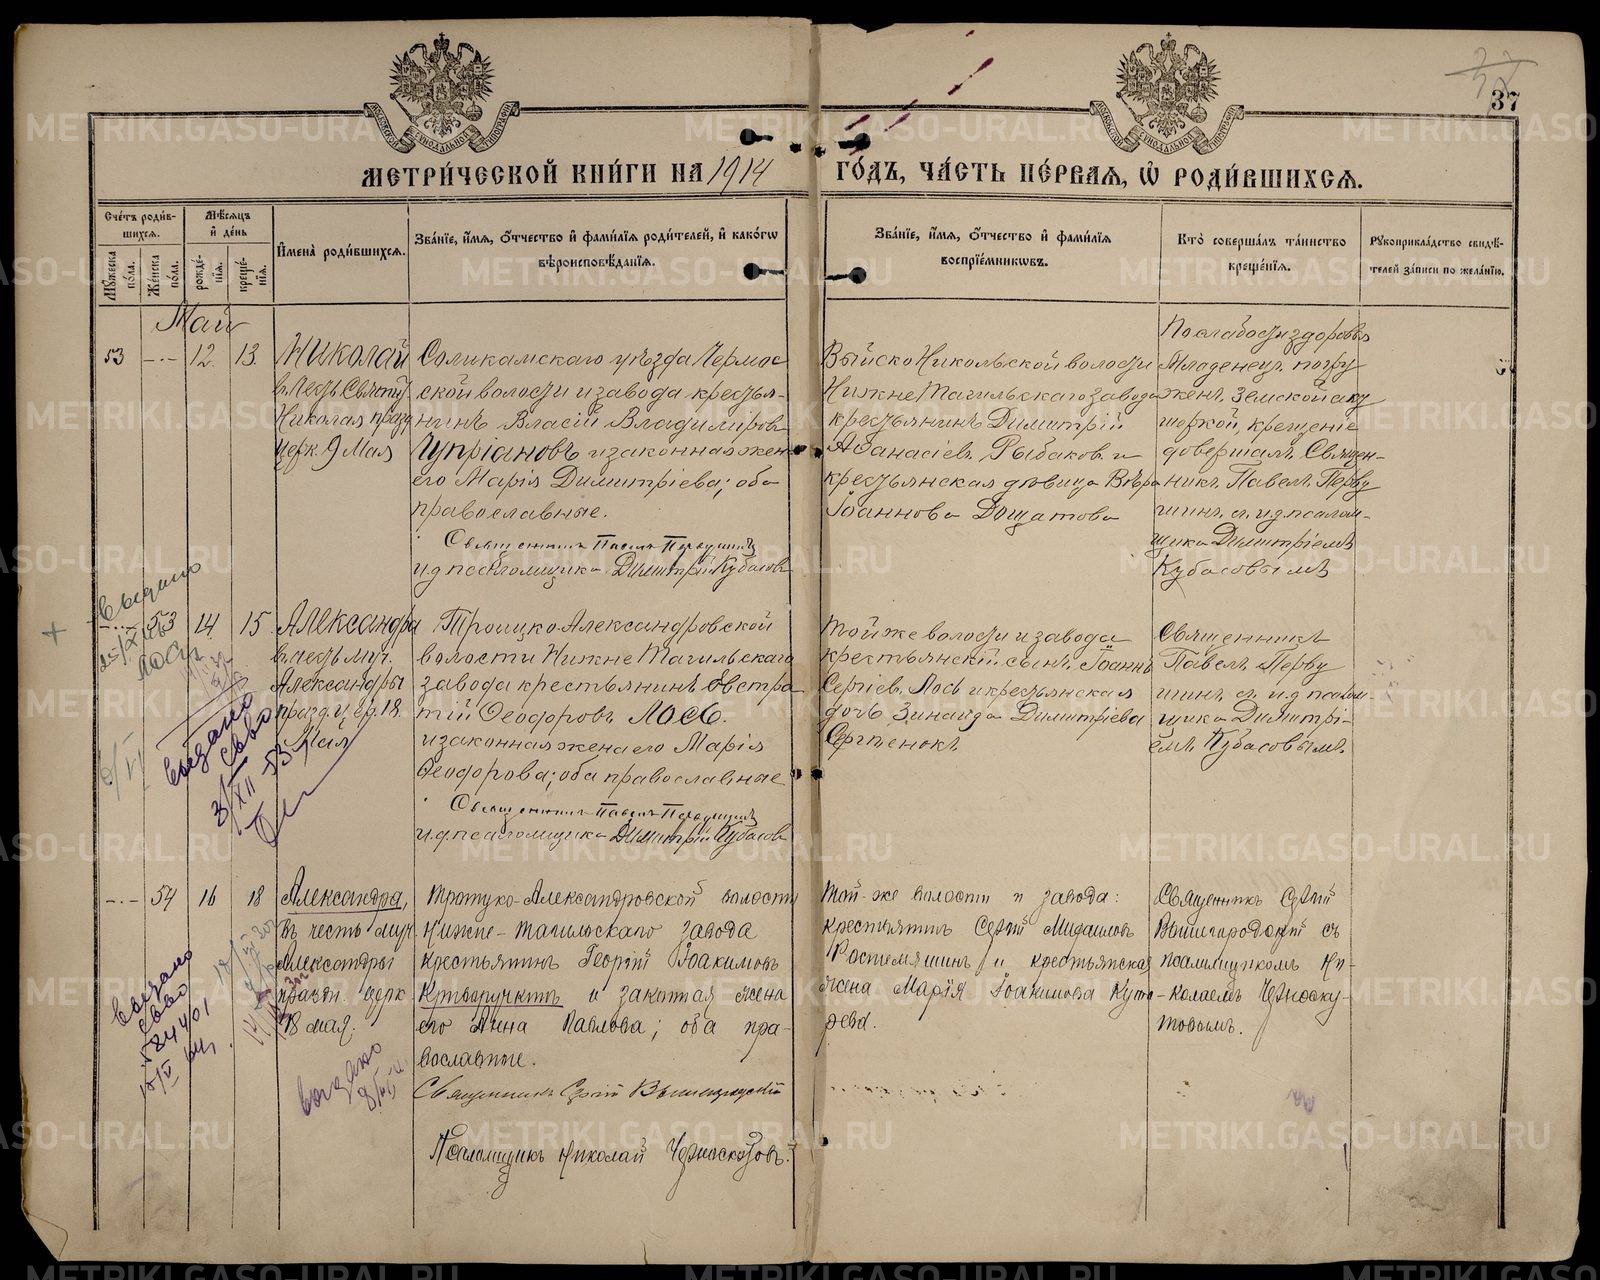 37
МЕТРИ́ЧЕСКОЙ КНИ́ГИ НА 1914 ГО́ДЪ, ЧА́СТЬ ПЕ́РВАЯ, Ѡ РОДИ́ВШИХСЯ.
Сче́тъ роди́в-
шихся.
Мꙋ́жеска по́ла.
Же́нска по́ла.
Мѣ́сяцъ
и҆ де́нь
рожде́нїя.
креще́нїя.
И҆мена̀ роди́вшихся.
Зва́нїе, и҆́мя, ѻ҆́тчество и҆ фами́лїя роди́телей, и҆ како́гѡ
вѣроисповѣ́данїя.
Зва́нїе, и҆́мя, ѻ҆́тчество и҆ фами́лїя
воспрїе́мникѡвъ.
Кто̀ соверша́лъ та́инство
креще́нїя.
Рꙋкоприкла́дство свидѣ́-
телей за́писи по жела́нїю.
Май
53 -.- 12. 13.
Николай
в честь Святит.
Николая празд
церк. 9 Мая
Соликамскаго уѣзда Чермос
ской волости и завода крестья-
нинъ Власій Владиміровъ
Чупріановъ и законная жен
его Марія Димитріева; оба
православные.
Священникъ Павелъ Первушинъ
и.д псаломщика Димитрій Кубасовъ
Выйско Никольской волости
Нижне Тагильскаго завода
крестьянинъ Димитрій
Аѳанасіевъ Рыбаковъ и
крестьянская дѣвица Вѣра
Іоаннова Дощатова
По слабости здоровья
младенецъ погру
женъ Земской аку
шеркой, крещеніе
довершалъ Священ-
никъ Павелъ Перву
шинъ съ и.д псалом-
щика Димитріемъ
Кубасовымъ
-.- 53 14 15
Александра
в честь муч.
Александры
празд. церк. 18
Мая
Троицко-Александровской
волости Нижне Тагильскаго
завода крестьянинъ Евстра
тій Ѳеодоровъ Лось.
и законная жена его Марія
Ѳеодорова; оба православные
Священникъ Павелъ Первушинъ
и.д псаломщика Димитрій Кубасовъ
Той же волости и завода
крестьянскій сынъ Іоаннъ
Сергіевъ Лось и крестьянская
дочь Зинаида Димитріева
Сергѣенокъ
Священникъ
Павелъ Перву
шинъ съ и.д псалом
щика Димитрі-
емъ Кубасовымъ.
Выдано
Лось
выдано
св-во
3/XII-53 г
-.- 54 16 18
Александра,
въ честь муч.
Александры
празн. церк
18 мая.
Троицко-Александровской волости
Нижне-Тагильскаго завода
крестьянинъ Георгій Іоакимовъ
и законная жена
его Анна Павлова; оба пра-
вославные.
Священникъ Сергій Вышегородскій
Псаломщикъ Николай Черноскутовъ.
Той-же волости и завода:
крестьянинъ Сергій Михаиловъ
и крестьянская
жена Марія Іоакимова
Священникъ Сергій
Вышегородскій съ
псаломщикомъ Ни-
колаемъ Черноску-
товымъ.
выдано
св-во
выдано
METRIKI.GASO-URAL.RU